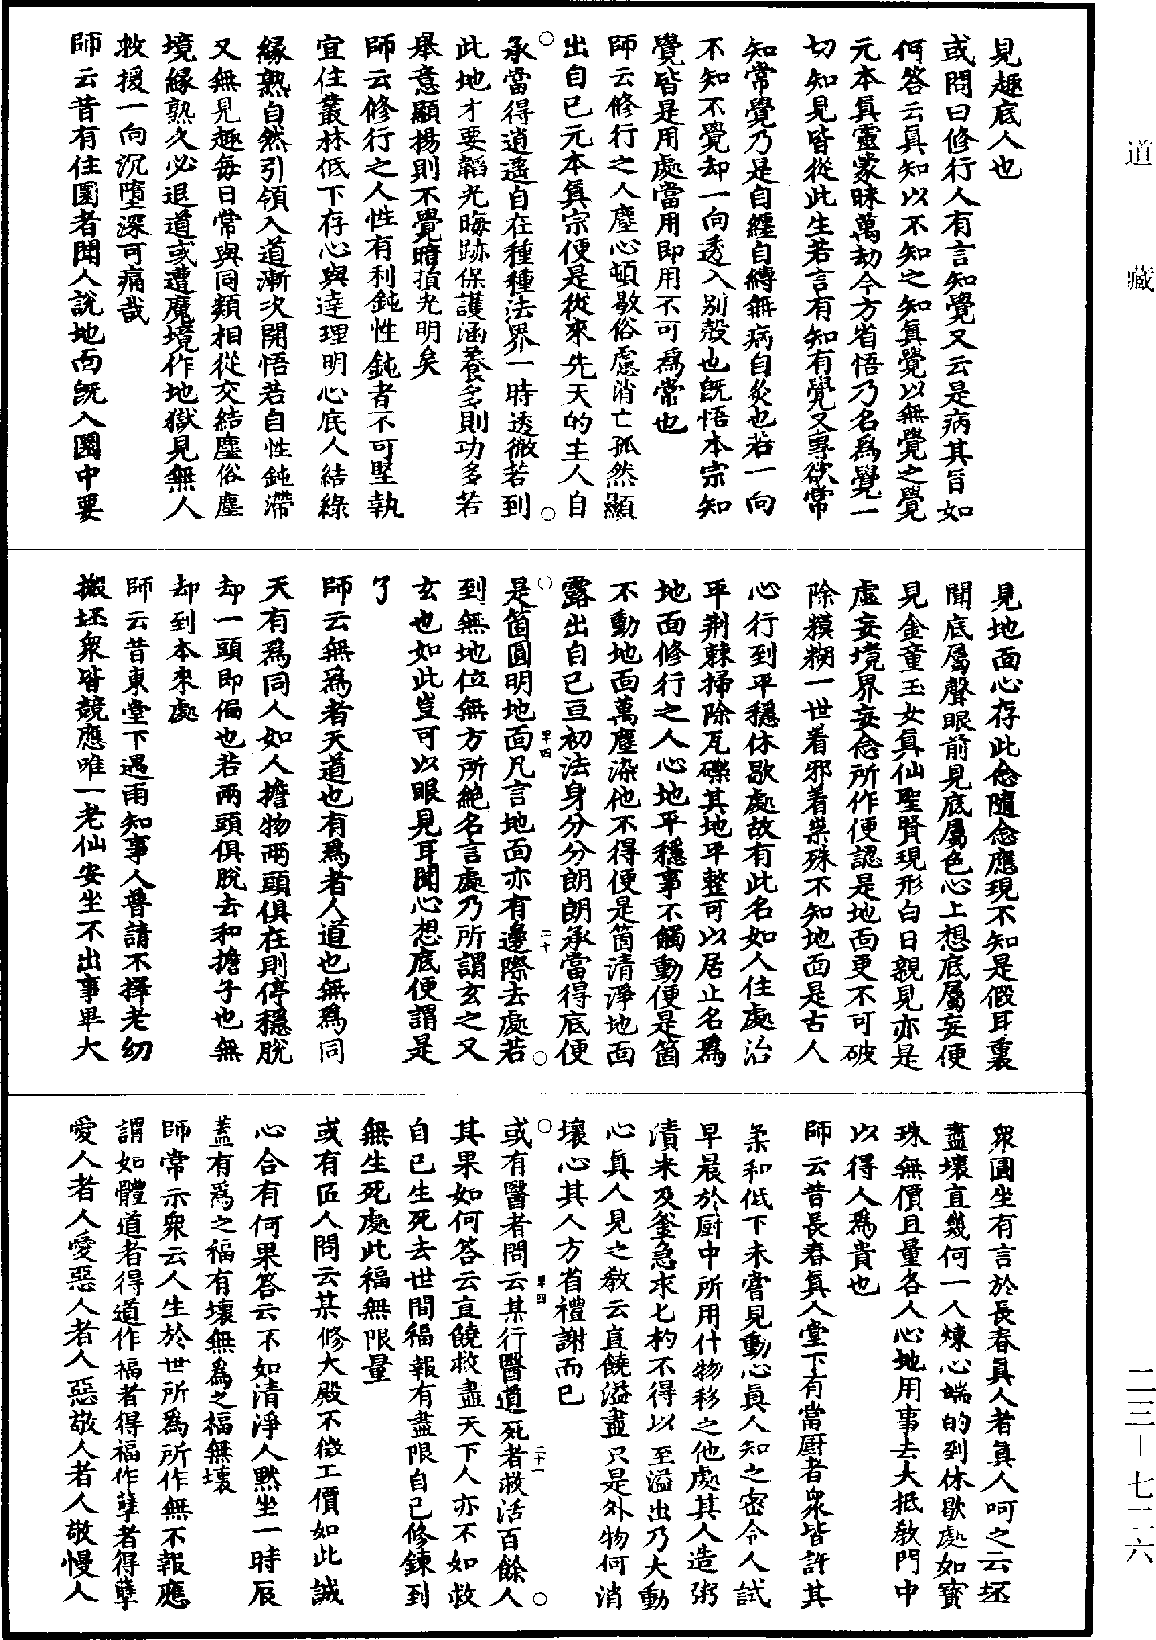 道藏
見趣底人也
或問曰修行人有言知覺又云是病其旨如
何答云真知以不知之知真覺以無覺之覺
元本真靈蒙昧萬劫今方省悟乃名為覺一
切知見皆從此生若言有知有覺又專欲常
知常覺乃是自纏自縛無病自灸也若一向
不知不覺却一向透入別殼也既悟本宗知
覺皆是用處當用即用不可為常也
師云修行之人塵心頓歇俗慮消亡孤然顯
出自己元本真宗便是從來先天的主人自
承當得逍遙自在種種法界一時透徹若到
此地才要韜光晦跡保護涵養多則功多若
舉意顯揚則不覺暗損光明矣
師云修行之人性有利鈍性鈍者不可堅執
宜住叢林低下存心與達理明心底人結緣
緣熟自然引領入道漸次開悟若自性鈍滯
又無見趣每日常與同類相從交結塵俗塵
境緣熟久必退道或遭魔境作地獄見無人
救援一向沉墮深可痛哉
師云昔有住圜者聞人說地面既入圜中要
見地面心存此念隨念應現不知是假耳裏
聞底屬聲眼前見底屬色心上想底屬妄便
見金童玉女真仙聖賢現形白日親見亦是
虛妄境界妄念所作便認是地面更不可破
除模糊一世着邪着祟殊不知地面是古人
心行到平穩休歇處故有此名如人住處治
平荊棘掃除瓦礫其地平整可以居止名為
地面修行之人心地平穩事不觸動便是箇
不動地面萬塵染他不得便是箇清淨地面
露出自己亘初法身分分朗朗承當得底便
是箇圓明地面凡言地面亦有邊際去處若
到無地位無方所絕名言處乃所謂玄之又
玄也如此豈可以眼見耳聞心想底便謂是
了
師云無為者天道也有為者人道也無為同
天有為同人如人擔物兩頭俱在則停穩脫
却一頭即偏也若兩頭俱脫去和擔子也無
却到本來處
師云昔東堂下遇雨知事人普請不擇老幼
搬坯眾皆競應唯一老仙安坐不出事畢大
眾圓坐有言於長春真人者真人呵之云坯
盡壞直幾何一人煉心端的到休歇處如寶
珠無價且量各人心地用事去大抵教門中
以得人為貴也
師云昔長春真人堂下有當厨者眾皆許其
柔和低下未嘗見動心真人知之密令人試
早晨於厨中所用什物移之他處其人造粥
漬米及釜急求匕杓不得以至溢出乃大動
心真人見之教云直饒溢盡只是外物何消
壞心其人方省禮謝而已
或有醫者問云某行醫道死者救活百餘人
其果如何答云直饒救盡天下人亦不如救
自己生死去世間福報有盡限自己修鍊到
無生死處此福無限量
或有匠人問云某修大殿不徵工價如此誠
心合有何果答云不如清淨人默坐一時辰
蓋有為之福有壞無為之福無壞
師常示眾云人生於世所為所作無不報應
謂如體道者得道作福者得福作孽者得孽
愛人者人愛惡人者人惡敬人者人敬慢人
二三—七二六